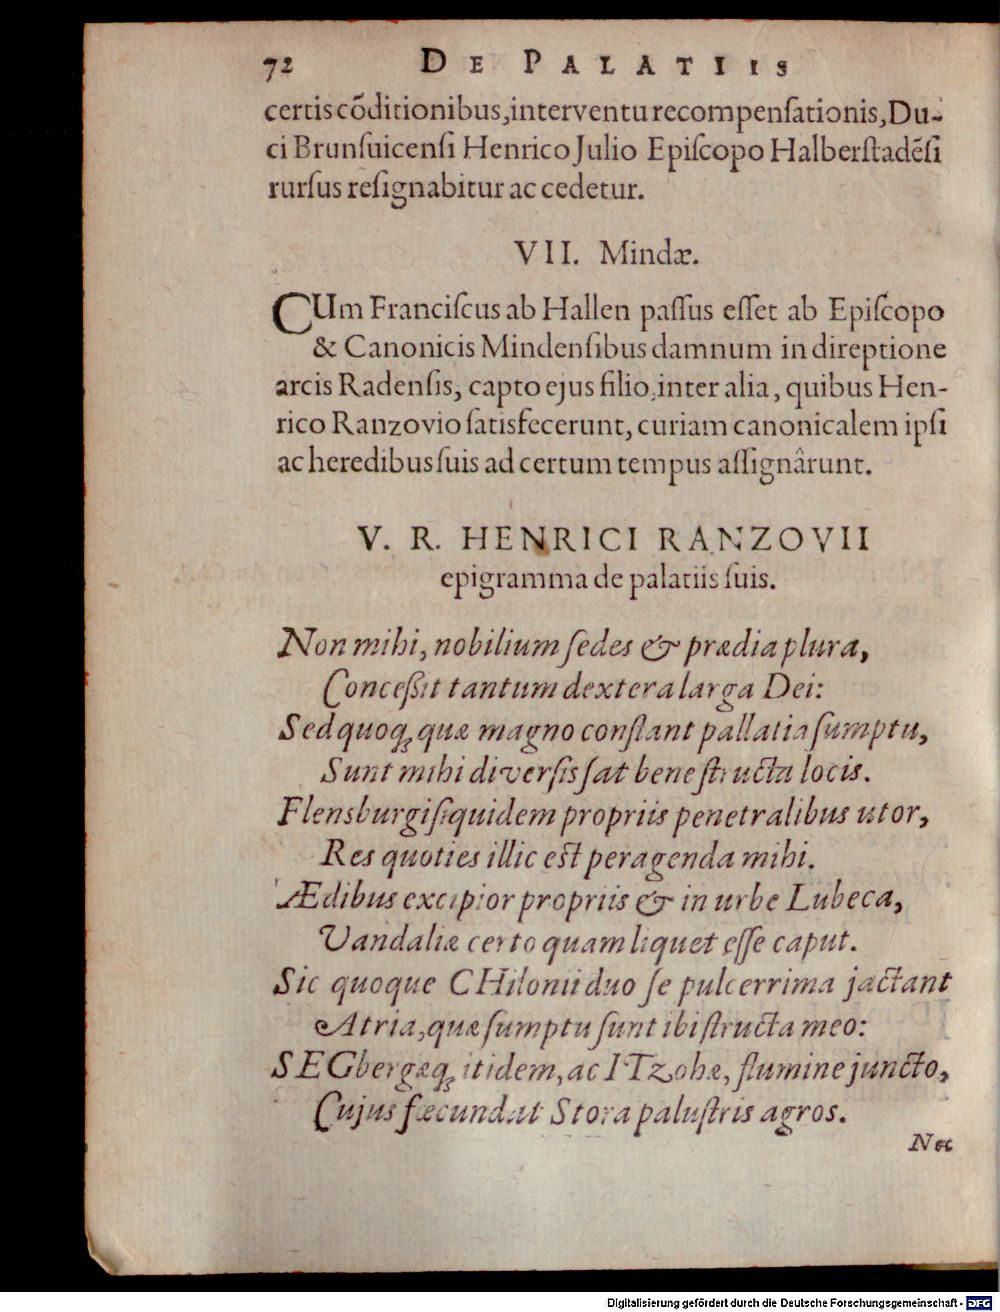 72 DE PALATIIS
certis cõditionibus, interventu recompenſationis, Du-
ci Brunſuicenſi Henrico Julio Epiſcopo Halberſtadẽſi
rurſus reſignabitur ac cedetur.
VII. Mindæ.
CUm Franciſcus ab Hallen paſſus eſſet ab Epiſcopo
& Canonicis Mindenſibus damnum in direptione
arcis Radenſis, capto ejus filio, inter alia, quibus Hen-
rico Ranzovio ſatisfecerunt, curiam canonicalem ipſi
ac heredibus ſuis ad certum tempus aſſignârunt.
V. R. HENRICI RANZOVII
epigramma de palatiis ſuis.
Non mihi, nobilium ſedes & prædia plura,
Conceßit tantum dextera larga Dei:
Sed quoq; quæ magno conſtant pallatia ſumptu,
Sunt mihi diverſis ſat bene ſtructa locis.
Flensburgi ſiquidem propriis penetralibus utor,
Res quoties illic eſt peragenda mihi.
Ædibus excipior propriis & in urbe Lubeca,
Vandaliæ certo quam liquet eſſe caput.
Sic quoque CHilonii duo ſe pulcerrima jactant
Atria, quæ ſumptu ſunt ibi ſtructa meo:
SEGbergæq; itidem, ac ITzohæ, flumine juncto,
Cujus fæcundat Stora paluſtris agros.
Nec
Digitalisierung gefördert durch die Deutsche Forschungsgemeinschaft - DFG